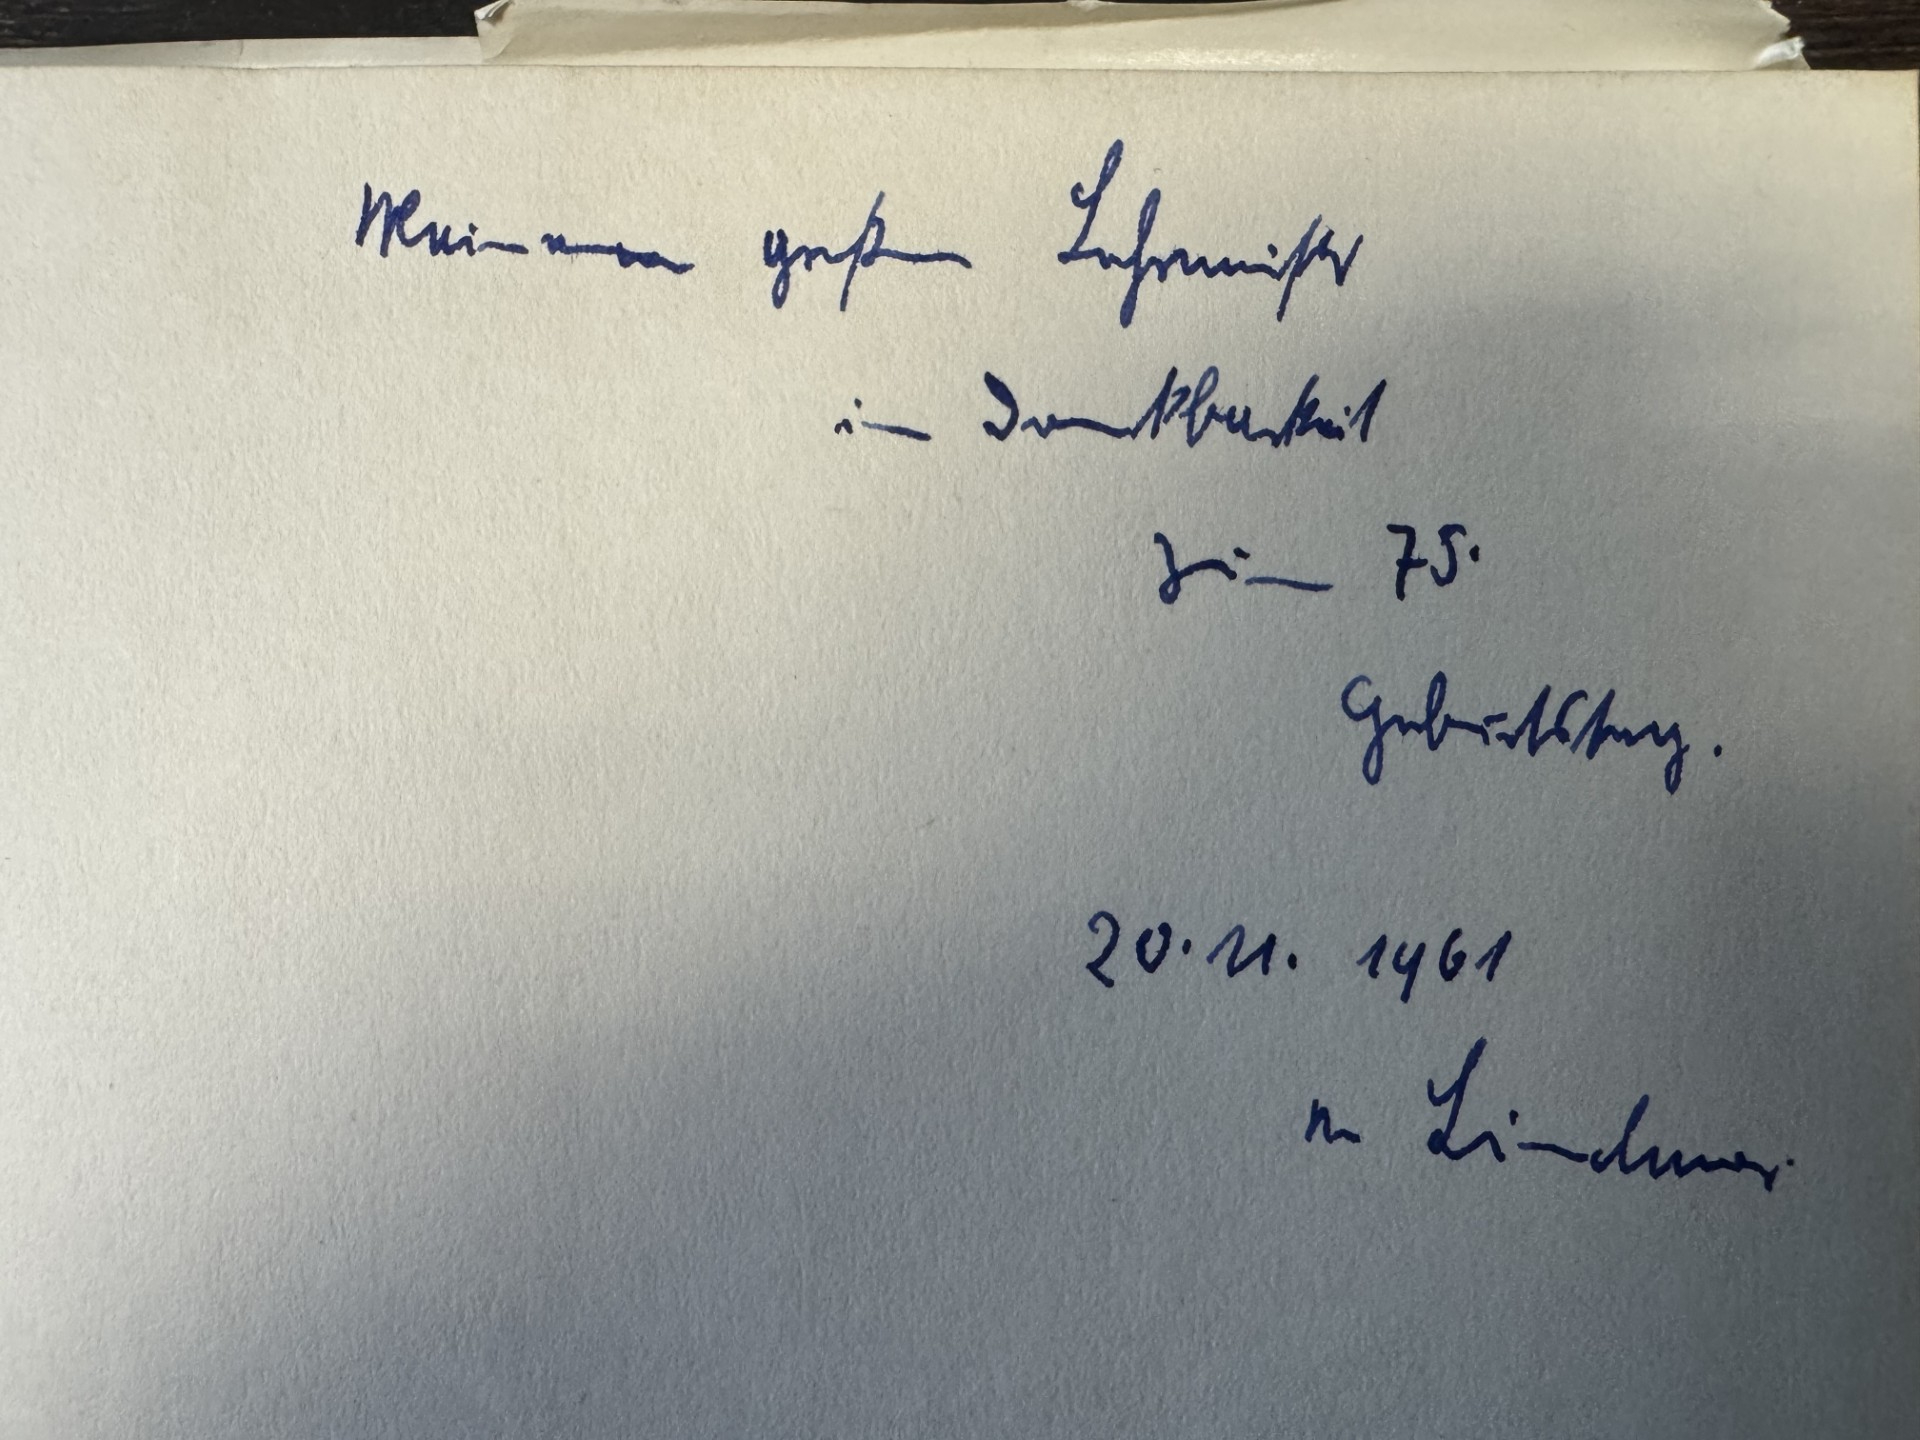 Meinem großen Lehrmeister
in Dankbarkeit
zum 75.
Geburtstag.
20.11.1961
M Lindauer